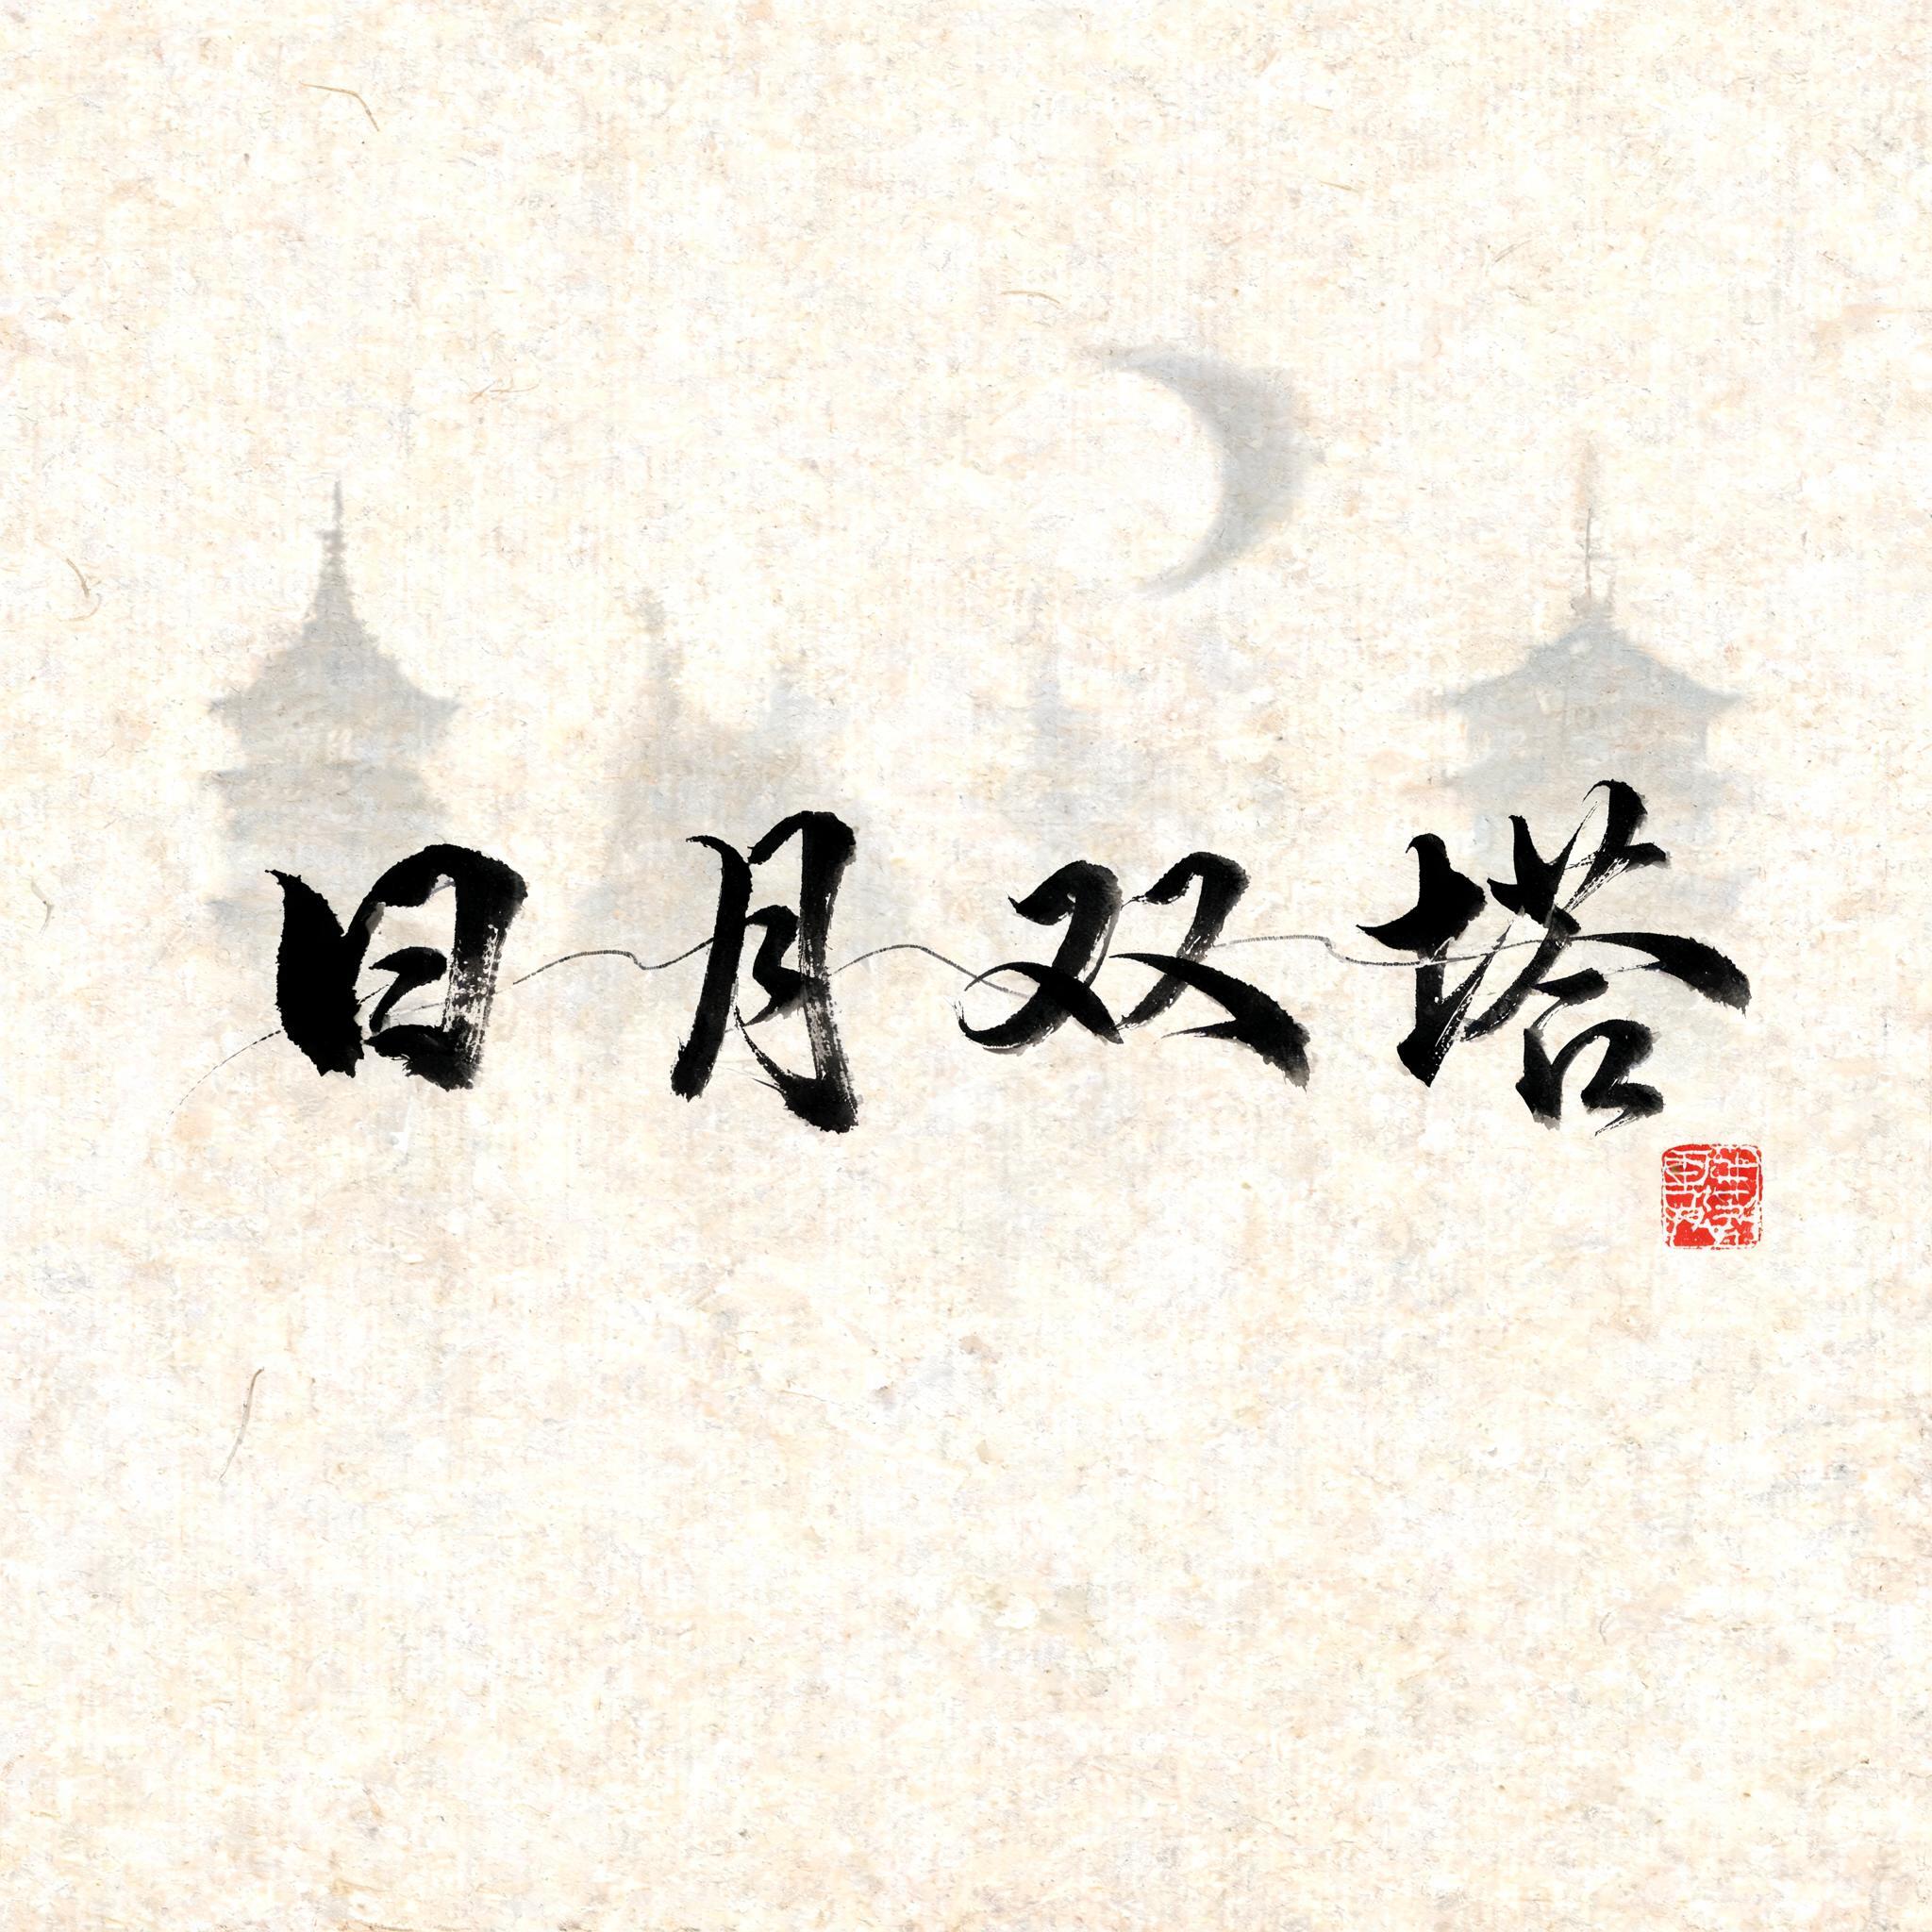 日月双塔